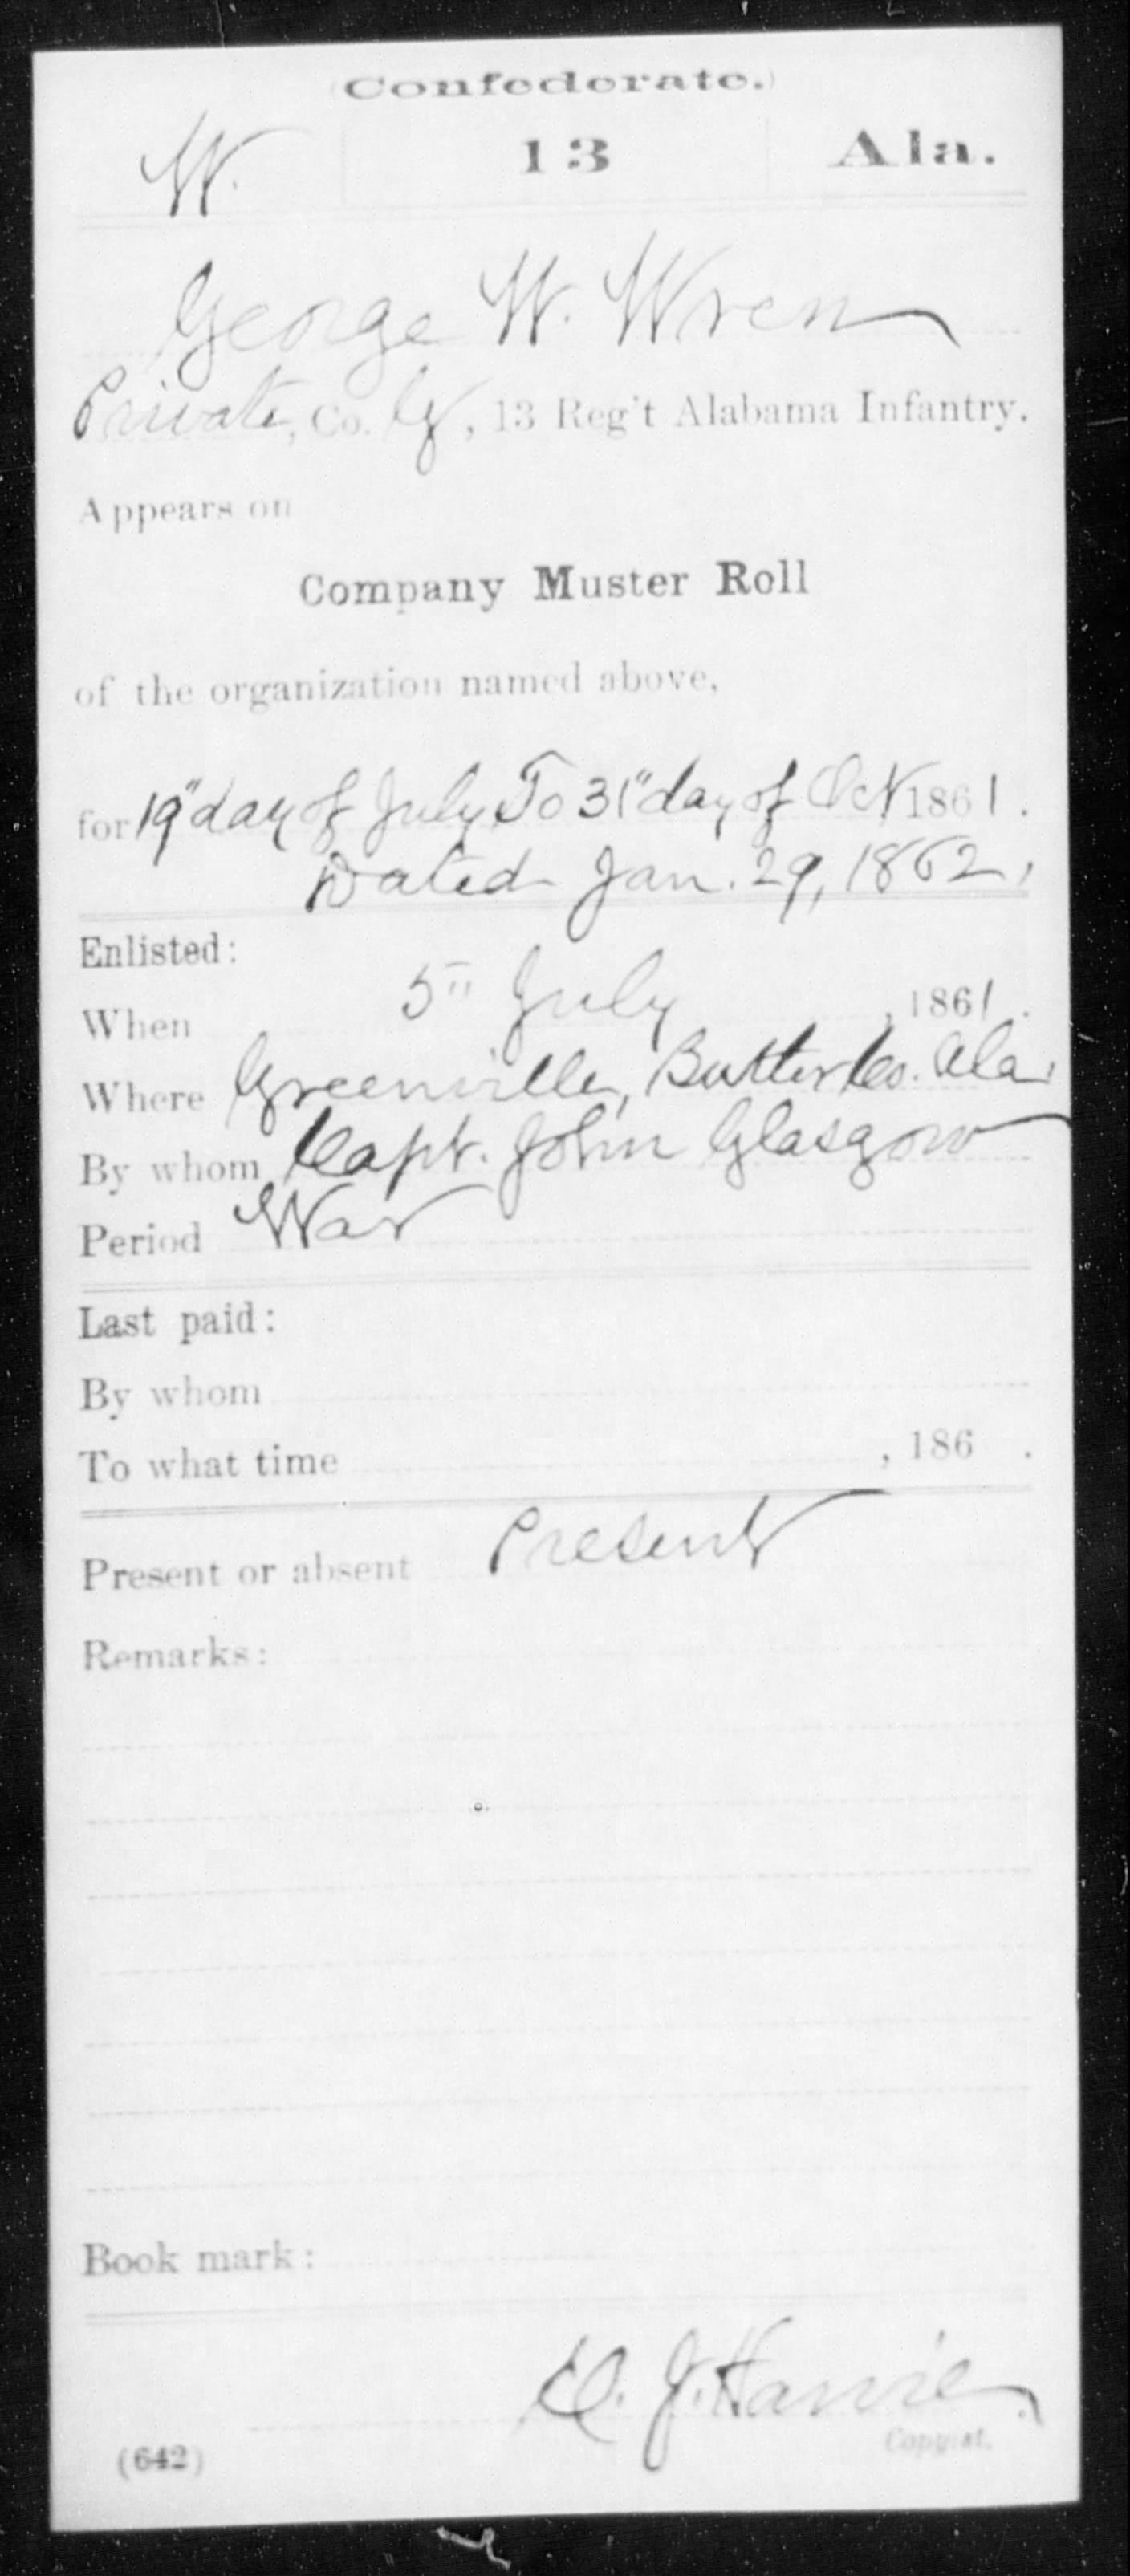 (Confederate.)
W. 13 Ala.
George W. Wren
Private, Co. G, 13 Reg't Alabama Infantry.
Appears on
Company Muster Roll
of the organization named above,
for 19" day of July To 31" day of Oct 1861.
Dated Jan. 29, 1862.
Enlisted:
When 5" July, 1861.
Where Greenville, Butler Co. Ala.
By whom Capt. John Glasgow
Period War
Last paid:
By whom
To what time , 186 .
Present or absent Present
Remarks:
Book mark:
J.
Copyist.
(642)